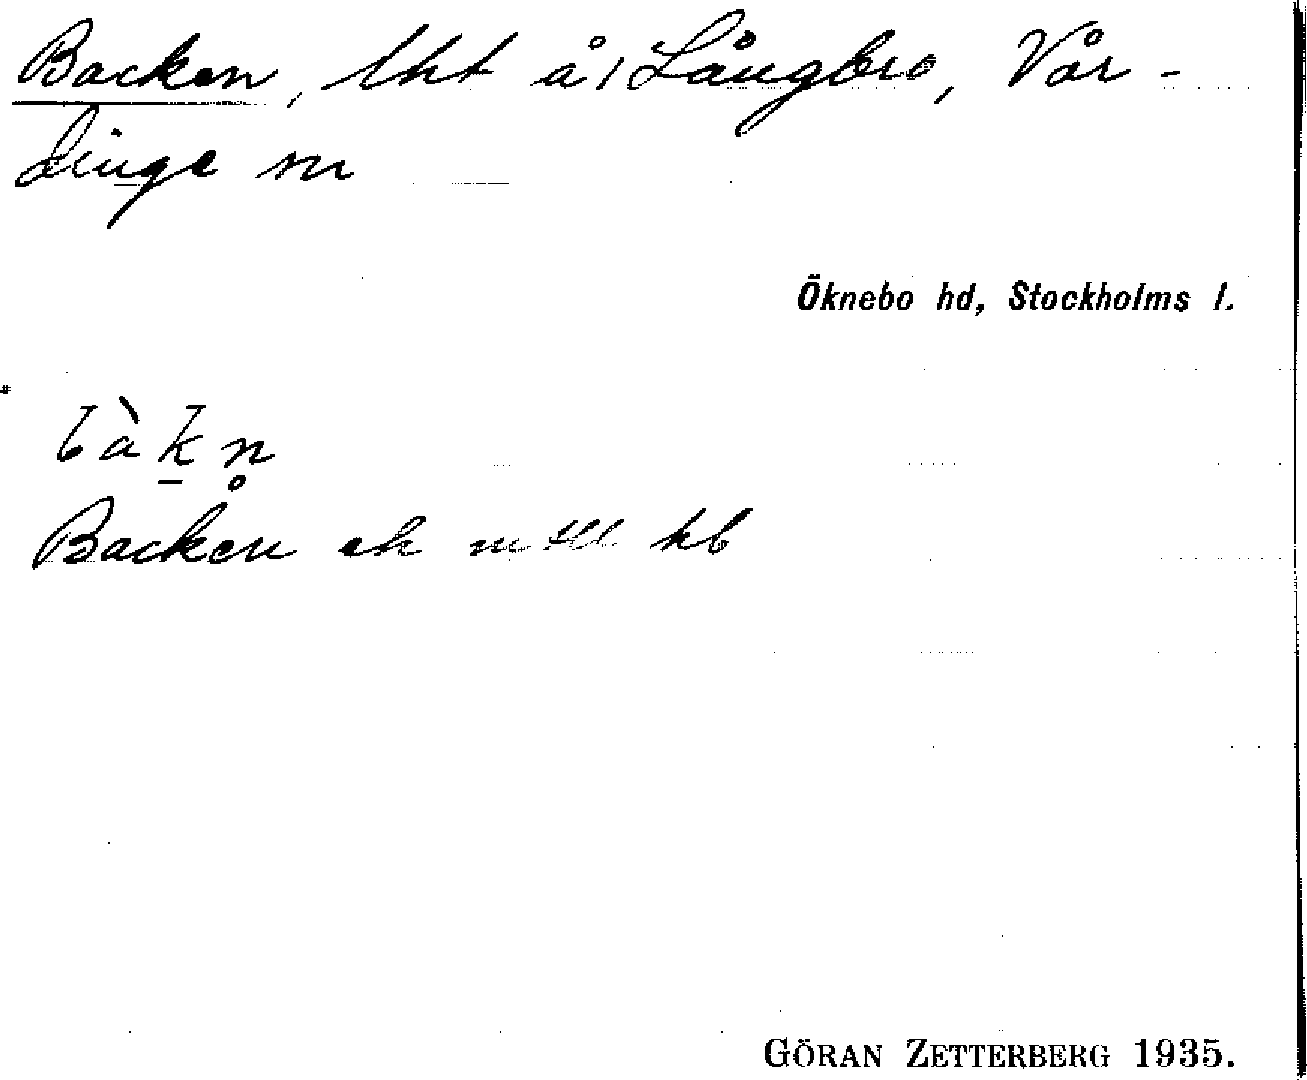 Backen, lht å Långbro, Vår-
dinge sn
Öknebo hd, Stockholms l.
bàk̲n̥
Backen ek
GÖRAN ZETTERBERG 1935.